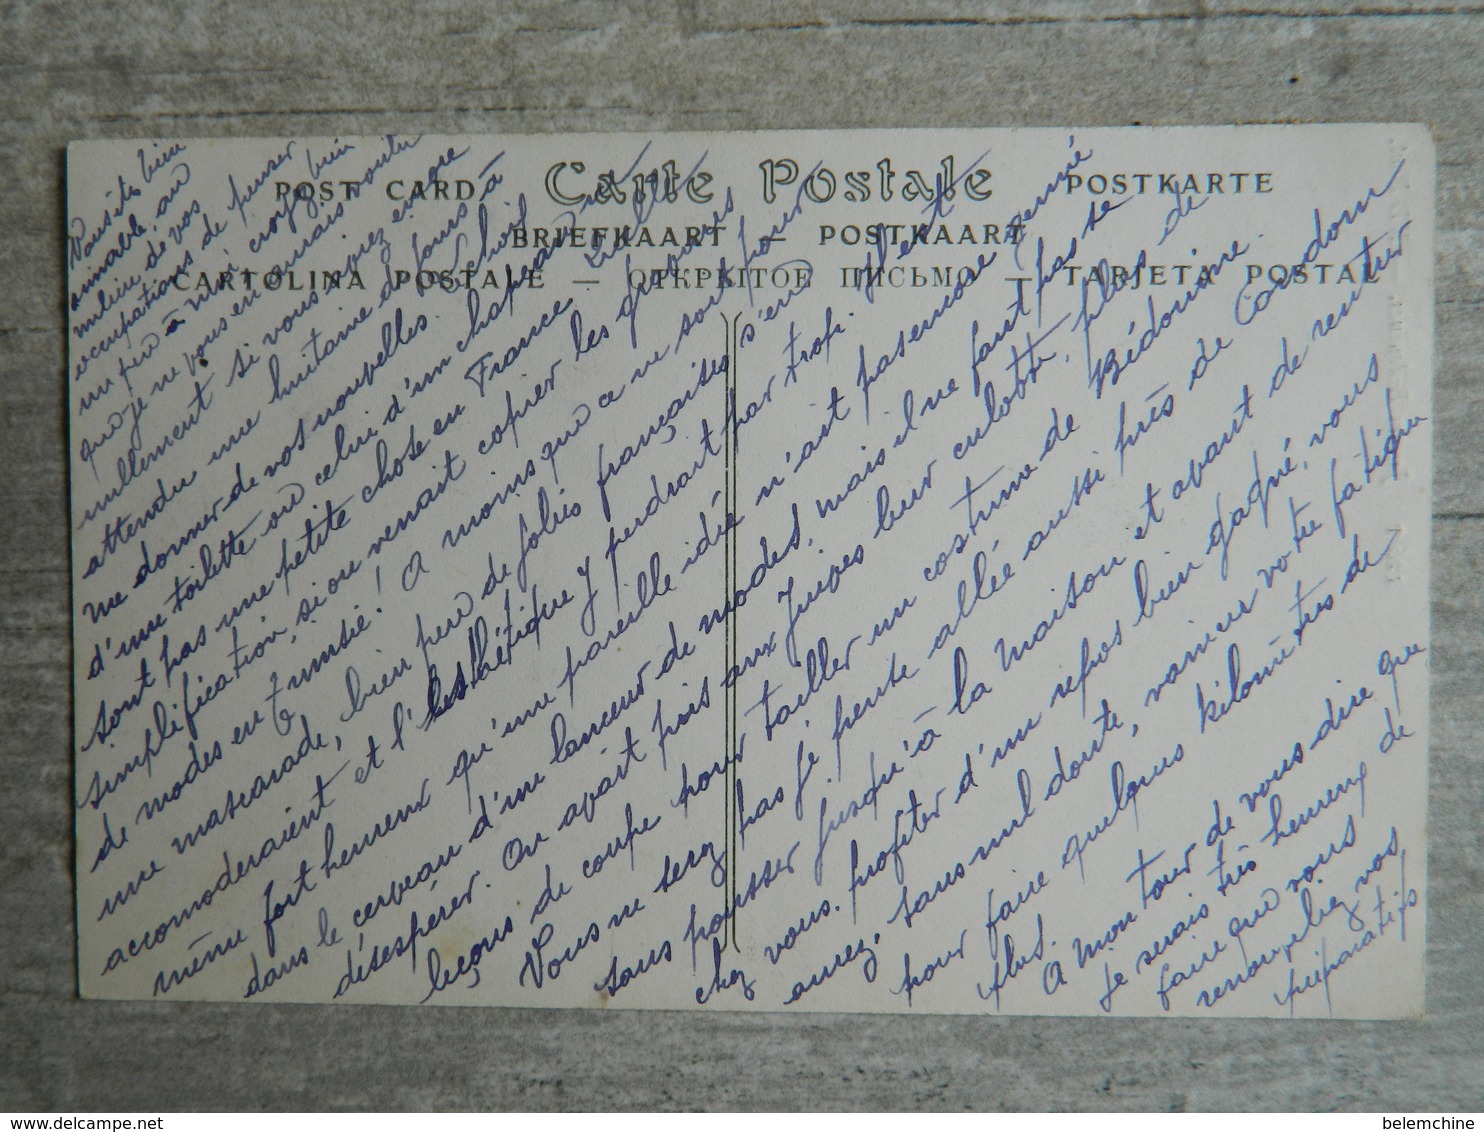 POST CARD Carte Postale POSTKARTE
BRIEFKAART — POSTKAART
CARTOLINA POSTALE — ОТКРЫТОЕ ПИСЬМО — TARJETA POSTAL
Vous êtes bien
aimable, au
milieu de vos
occupations de penser
un peu à moi, croyez bien
que je ne vous en aurais voulu
nullement si vous aviez encore
attendu une huitaine de jours à
me donner de vos nouvelles. Choisir
d'une toilette ou celui d'un chapeau ne
sont pas une petite chose en France. Quelle
simplification, si on venait copier les gravures
de modes en Tunisie! A moins que ce ne soit pour
une mascarade, bien peu de jolies françaises s'en
accomoderaient et l'esthétique y perdrait par trop. Il est
même fort heureux qu'une pareille idée n'ait pas encore germé
dans le cerveau d'un lanceur de modes, mais il ne faut pas se
désespérer. On avait pris aux Juives leur culotte, plus de
leçons de coupe pour tailler un costume de Bédouine.
Vous ne serez pas je pense allée aussi près de Coudom
sans pousser jusqu'à la maison et avant de rentrer
chez vous, profiter d'un repos bien gagné, vous
aurez, sans nul doute, vaincu votre fatigue
pour faire quelques kilomètres de
plus.
A mon tour de vous dire que
je serais très heureux de
faire que vous
renouveliez vos
préparatifs
belemchine